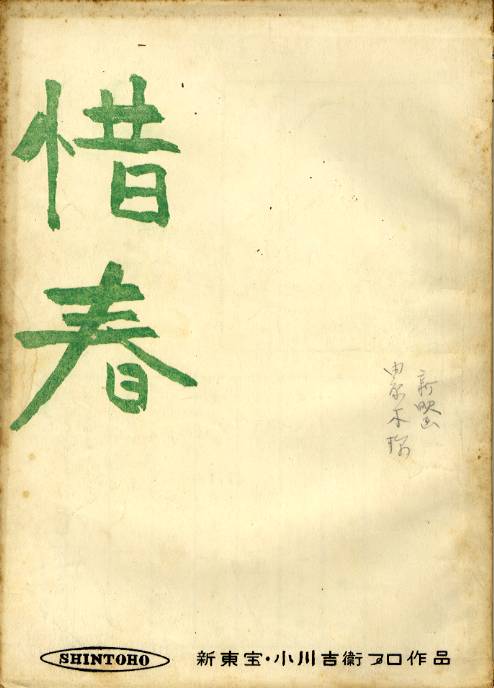 惜春
新映画
SHINTOHO
新東宝・小川吉衛プロ作品